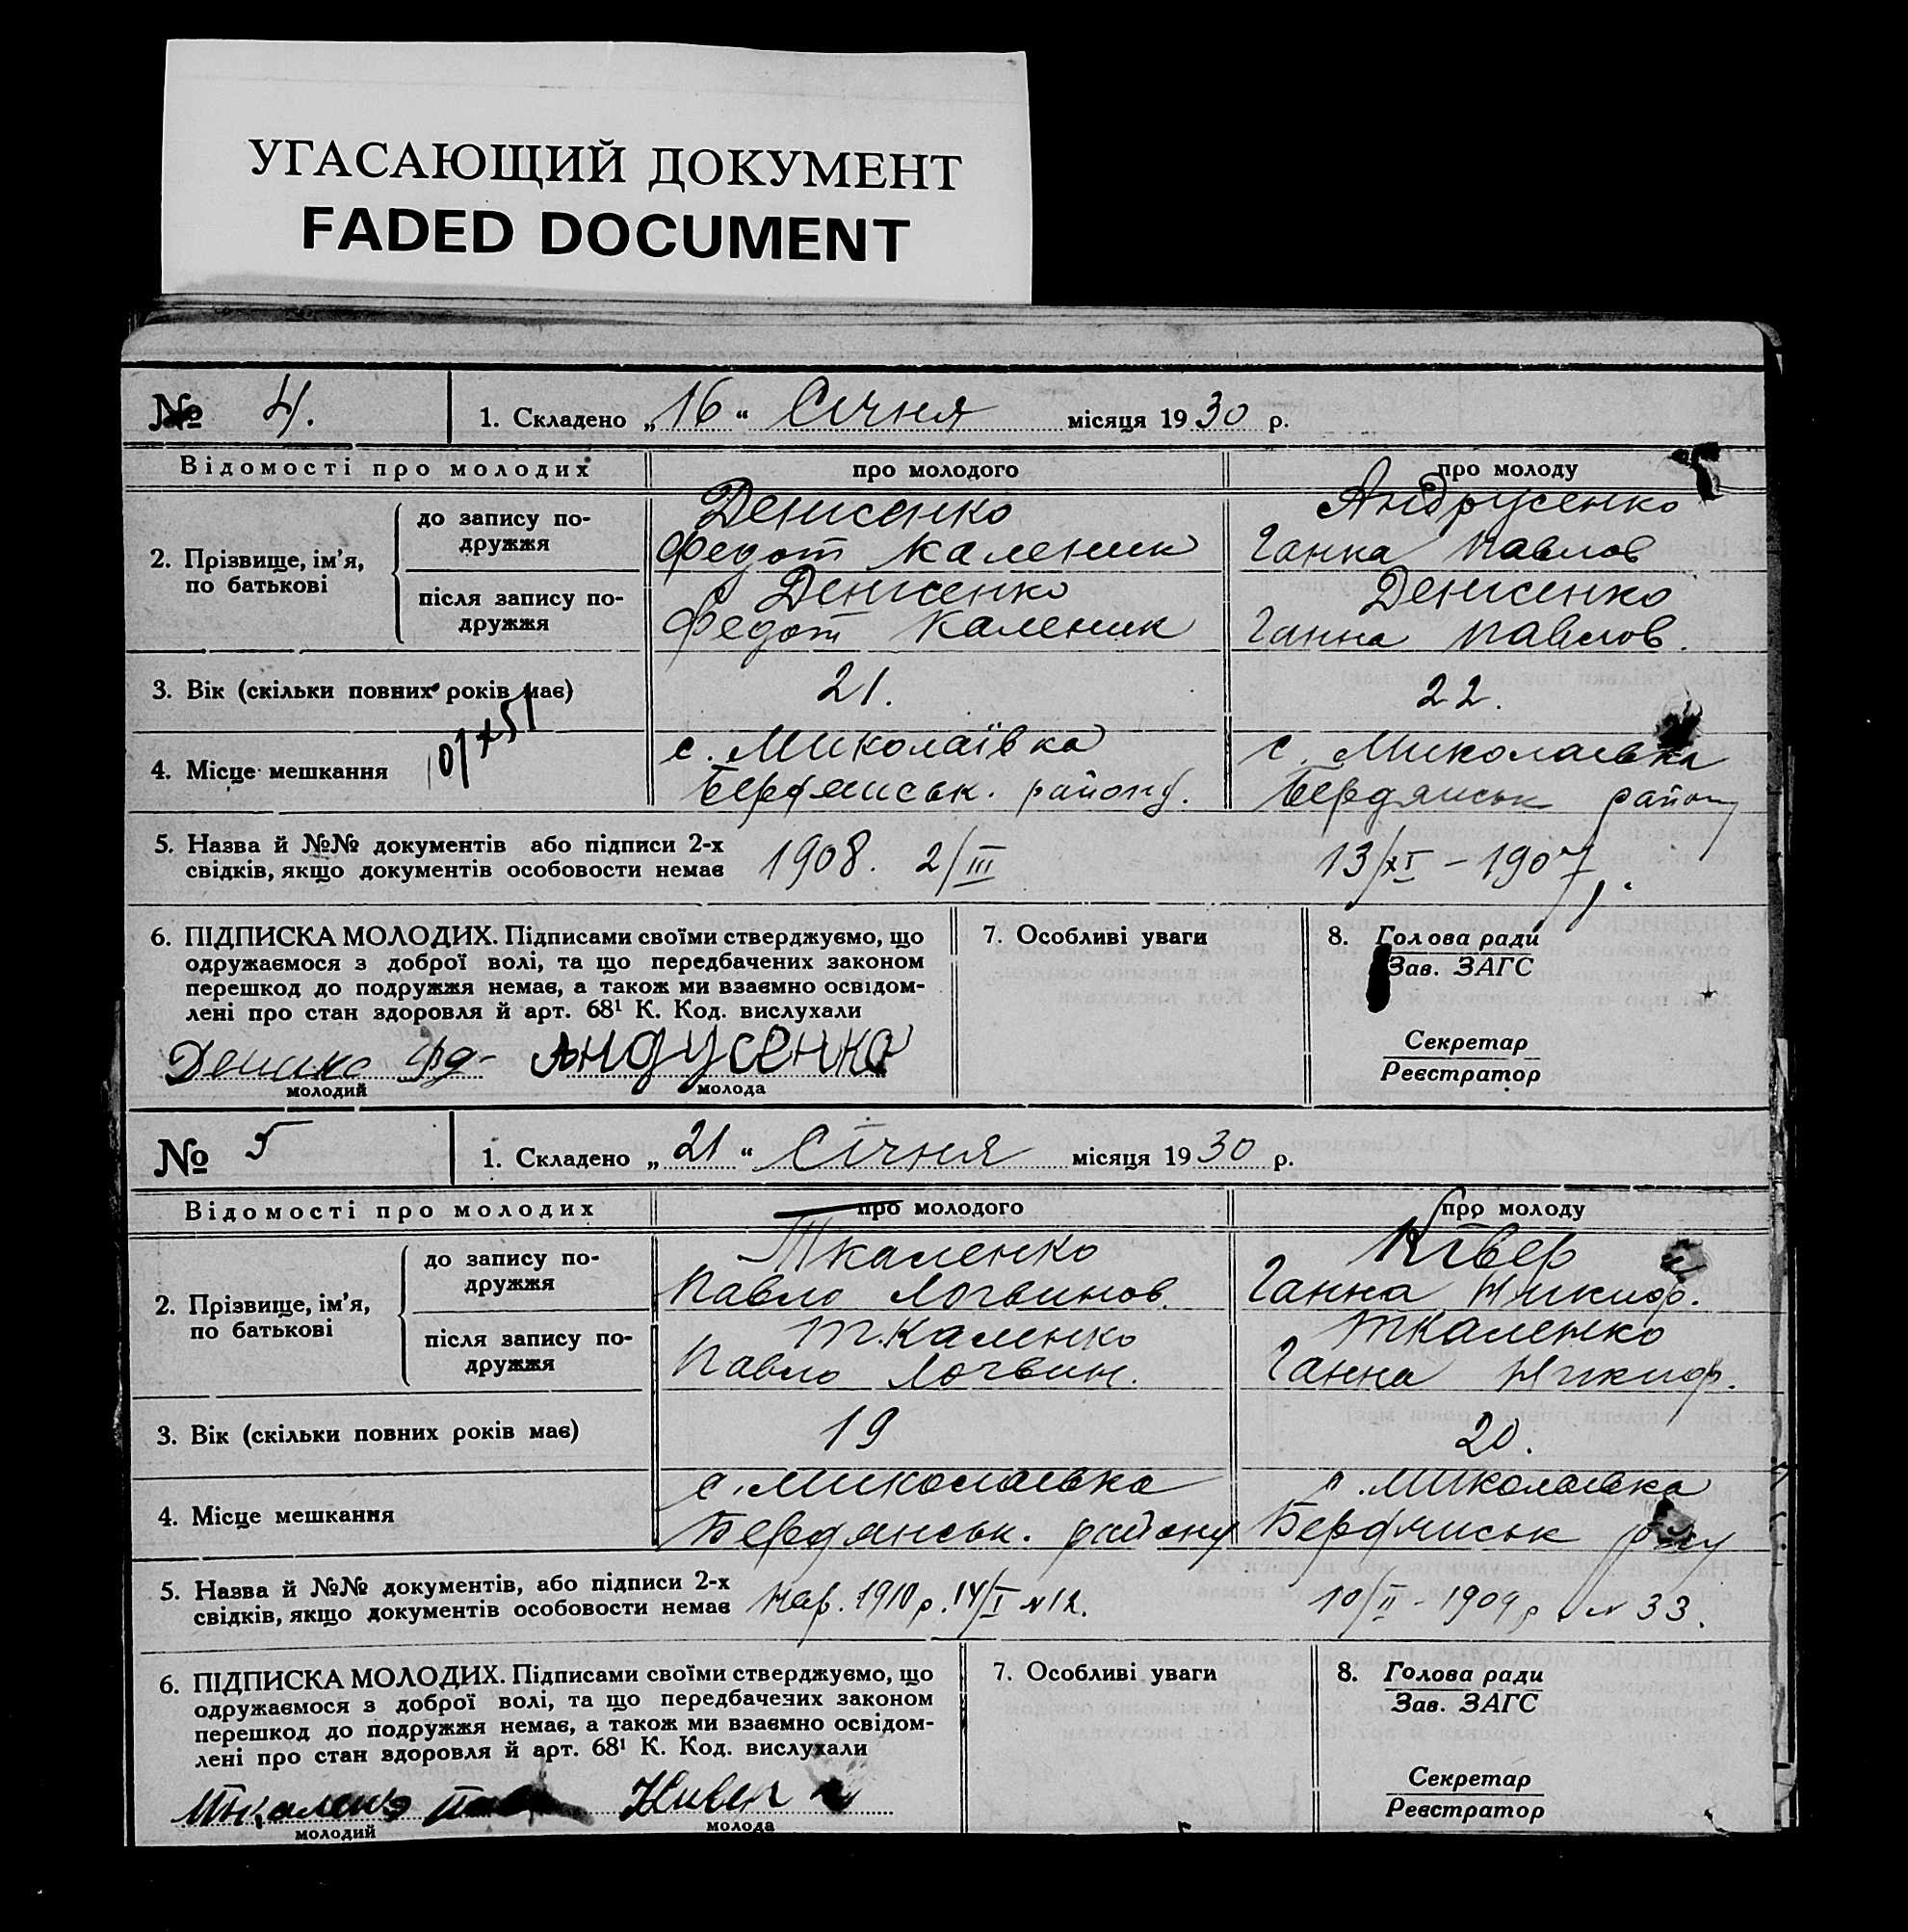 УГАСАЮЩИЙ ДОКУМЕНТ
FADED DOCUMENT
№ 4. 1. Складено „16“ Січня місяця 1930 р.
Відомості про молодих про молодого про молоду
2. Прізвище, ім'я, по батькові
до запису по-
дружжя
Денисенко
Федот Каленик
Андрусенко
Ганна Павлов
після запису по-
дружжя
Денисенко
Федот Каленик
Денисенко
Ганна Павлов.
3. Вік (скільки повних років має) 21. 22.
4. Місце мешкання
с. Миколаївка
Бердянськ. району.
с. Миколаівка
Бердянськ району
5. Назва й №№ документів або підписи 2-х
свідків, якщо документів особовости немає
1908. 2/III 13/XI – 1907
6. ПІДПИСКА МОЛОДИХ. Підписами своїми стверджуємо, що
одружаємося з доброї волі, та що передбачених законом
перешкод до подружжя немає, а також ми взаємно освідом-
лені про стан здоровля й арт. 68¹ К. Код. вислухали
Андусенко
молодий молода
7. Особливі уваги
8. Голова ради
Зав. ЗАГС
Секретар
Реєстратор
№ 5 1. Складено „21“ Січня місяця 1930 р.
Відомості про молодих про молодого про молоду
2. Прізвище, ім'я, по батькові
до запису по-
дружжя
Ткаленко
Павло Логвинов.
Ківер
Ганна Никиф.
після запису по-
дружжя
Ткаленко
Павло Логвин.
Ткаленко
Ганна Никиф.
3. Вік (скільки повних років має) 19 20.
4. Місце мешкання
с. Миколаівка
Бердянськ. району
с. Миколаівка
Бердянськ
5. Назва й №№ документів, або підписи 2-х
свідків, якщо документів особовости немає
Нар. 1910 р. 14/I № 12. 10/II – 1909 р. № 33.
6. ПІДПИСКА МОЛОДИХ. Підписами своїми стверджуємо, що
одружаємося з доброї волі, та що передбачених законом
перешкод до подружжя немає, а також ми взаємно освідом-
лені про стан здоровля й арт. 68¹ К. Код. вислухали
молодий молода
7. Особливі уваги
8. Голова ради
Зав. ЗАГС
Секретар
Реєстратор